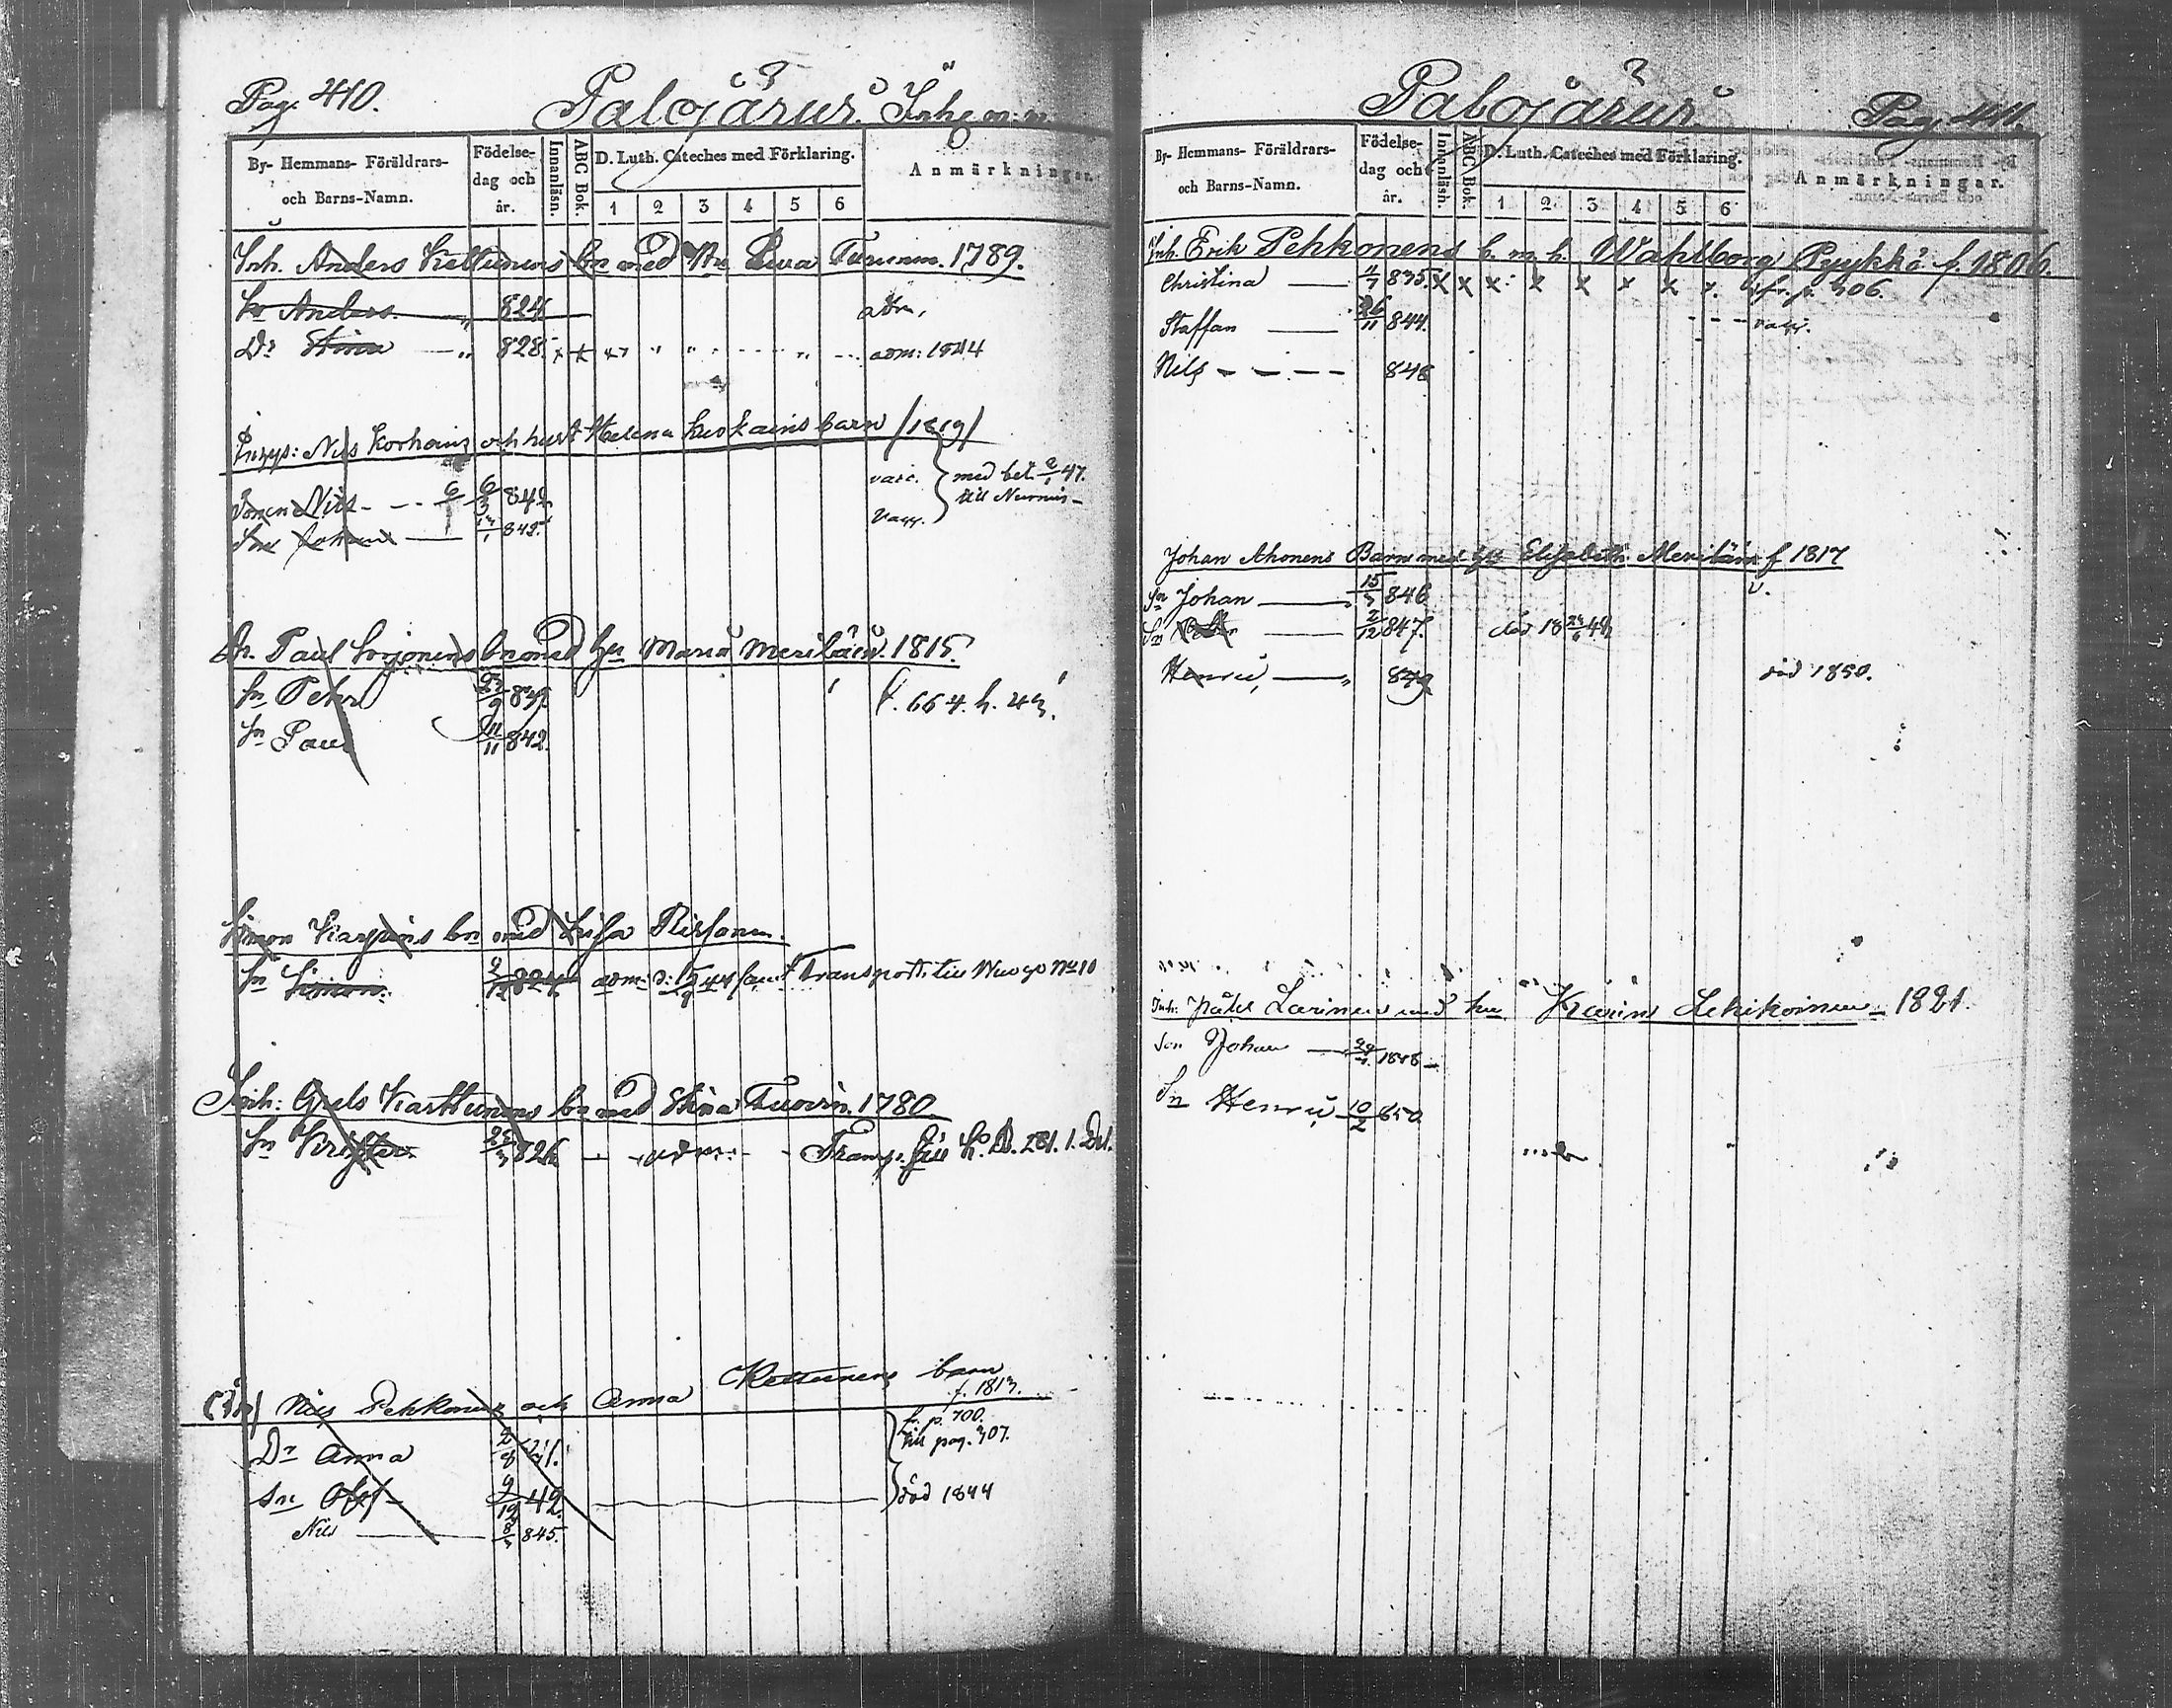 Pag. 410.
Palojärvi. Inhe
By- Hemmans- Föräldrars-
och Barns-Namn.
Födelse-
dag och
år.
Innanläsn.
ABC Bok.
D. Luth. Cateches med Förklaring.
1 2 3 4 5 6
Anmärkningar.
Inh. Anders Kettunens bn med Hu Ewa 1789.
Sn Anders 824 adm.
Dr Stina 828 x x adm: 1844
Inhys: Nils Korhoins och hust Helena barn /1819/
Sonen Nils 6/3 842 vacc. med bet. 47.
till Nurmis
Son Johan 845 vacc.
Paul Sorjonens bn med Hu Maria Meriläin. 1815.
Sn Pehr 839
f. 664. h. 43.
Sn Paul 11/11 842.
Simon Karpins bn med Lisa Pirhonen.
Sn Simon 824 adm: Transport. till No 10
Inh: Grels Karttunens bn med Stina Tuovin. 1780.
Sn Krister 826 adm: Transp. till K. B. 281. 1. Del.
(In) Nils Pehkonens och Anna Kettunens barn
f. 1813.
Dr Anna 2/8 41. f. p. 700.
till pag. 307.
Sn Olof 9/12 42. död 1844
Nils 8/3 845.
Palojärvi.
Pag. 411.
By- Hemmans- Föräldrars-
och Barns-Namn.
Födelse-
dag och
år.
Innanläsn.
ABC Bok.
D. Luth. Cateches med Förklaring.
1 2 3 4 5 6
Anmärkningar.
Inh. Erik Pehkonens b. m. h. Wahlborg Pyykkö f. 1806.
Christina 835. x x x x x x x x 306.
Staffan 26/11 844. vacc.
Nils 848
Johan Ahonens Barn med hu Elisabeth Meriläin f 1817
Sn Johan 15/3 846 v.
Sn 2/12 847. död 18
Henric 849 död 1850.
Inh: Påhl Larinen med hu Karin Lehikoinen 1821.
Son Johan 1848
Sn Henric 10/2 850